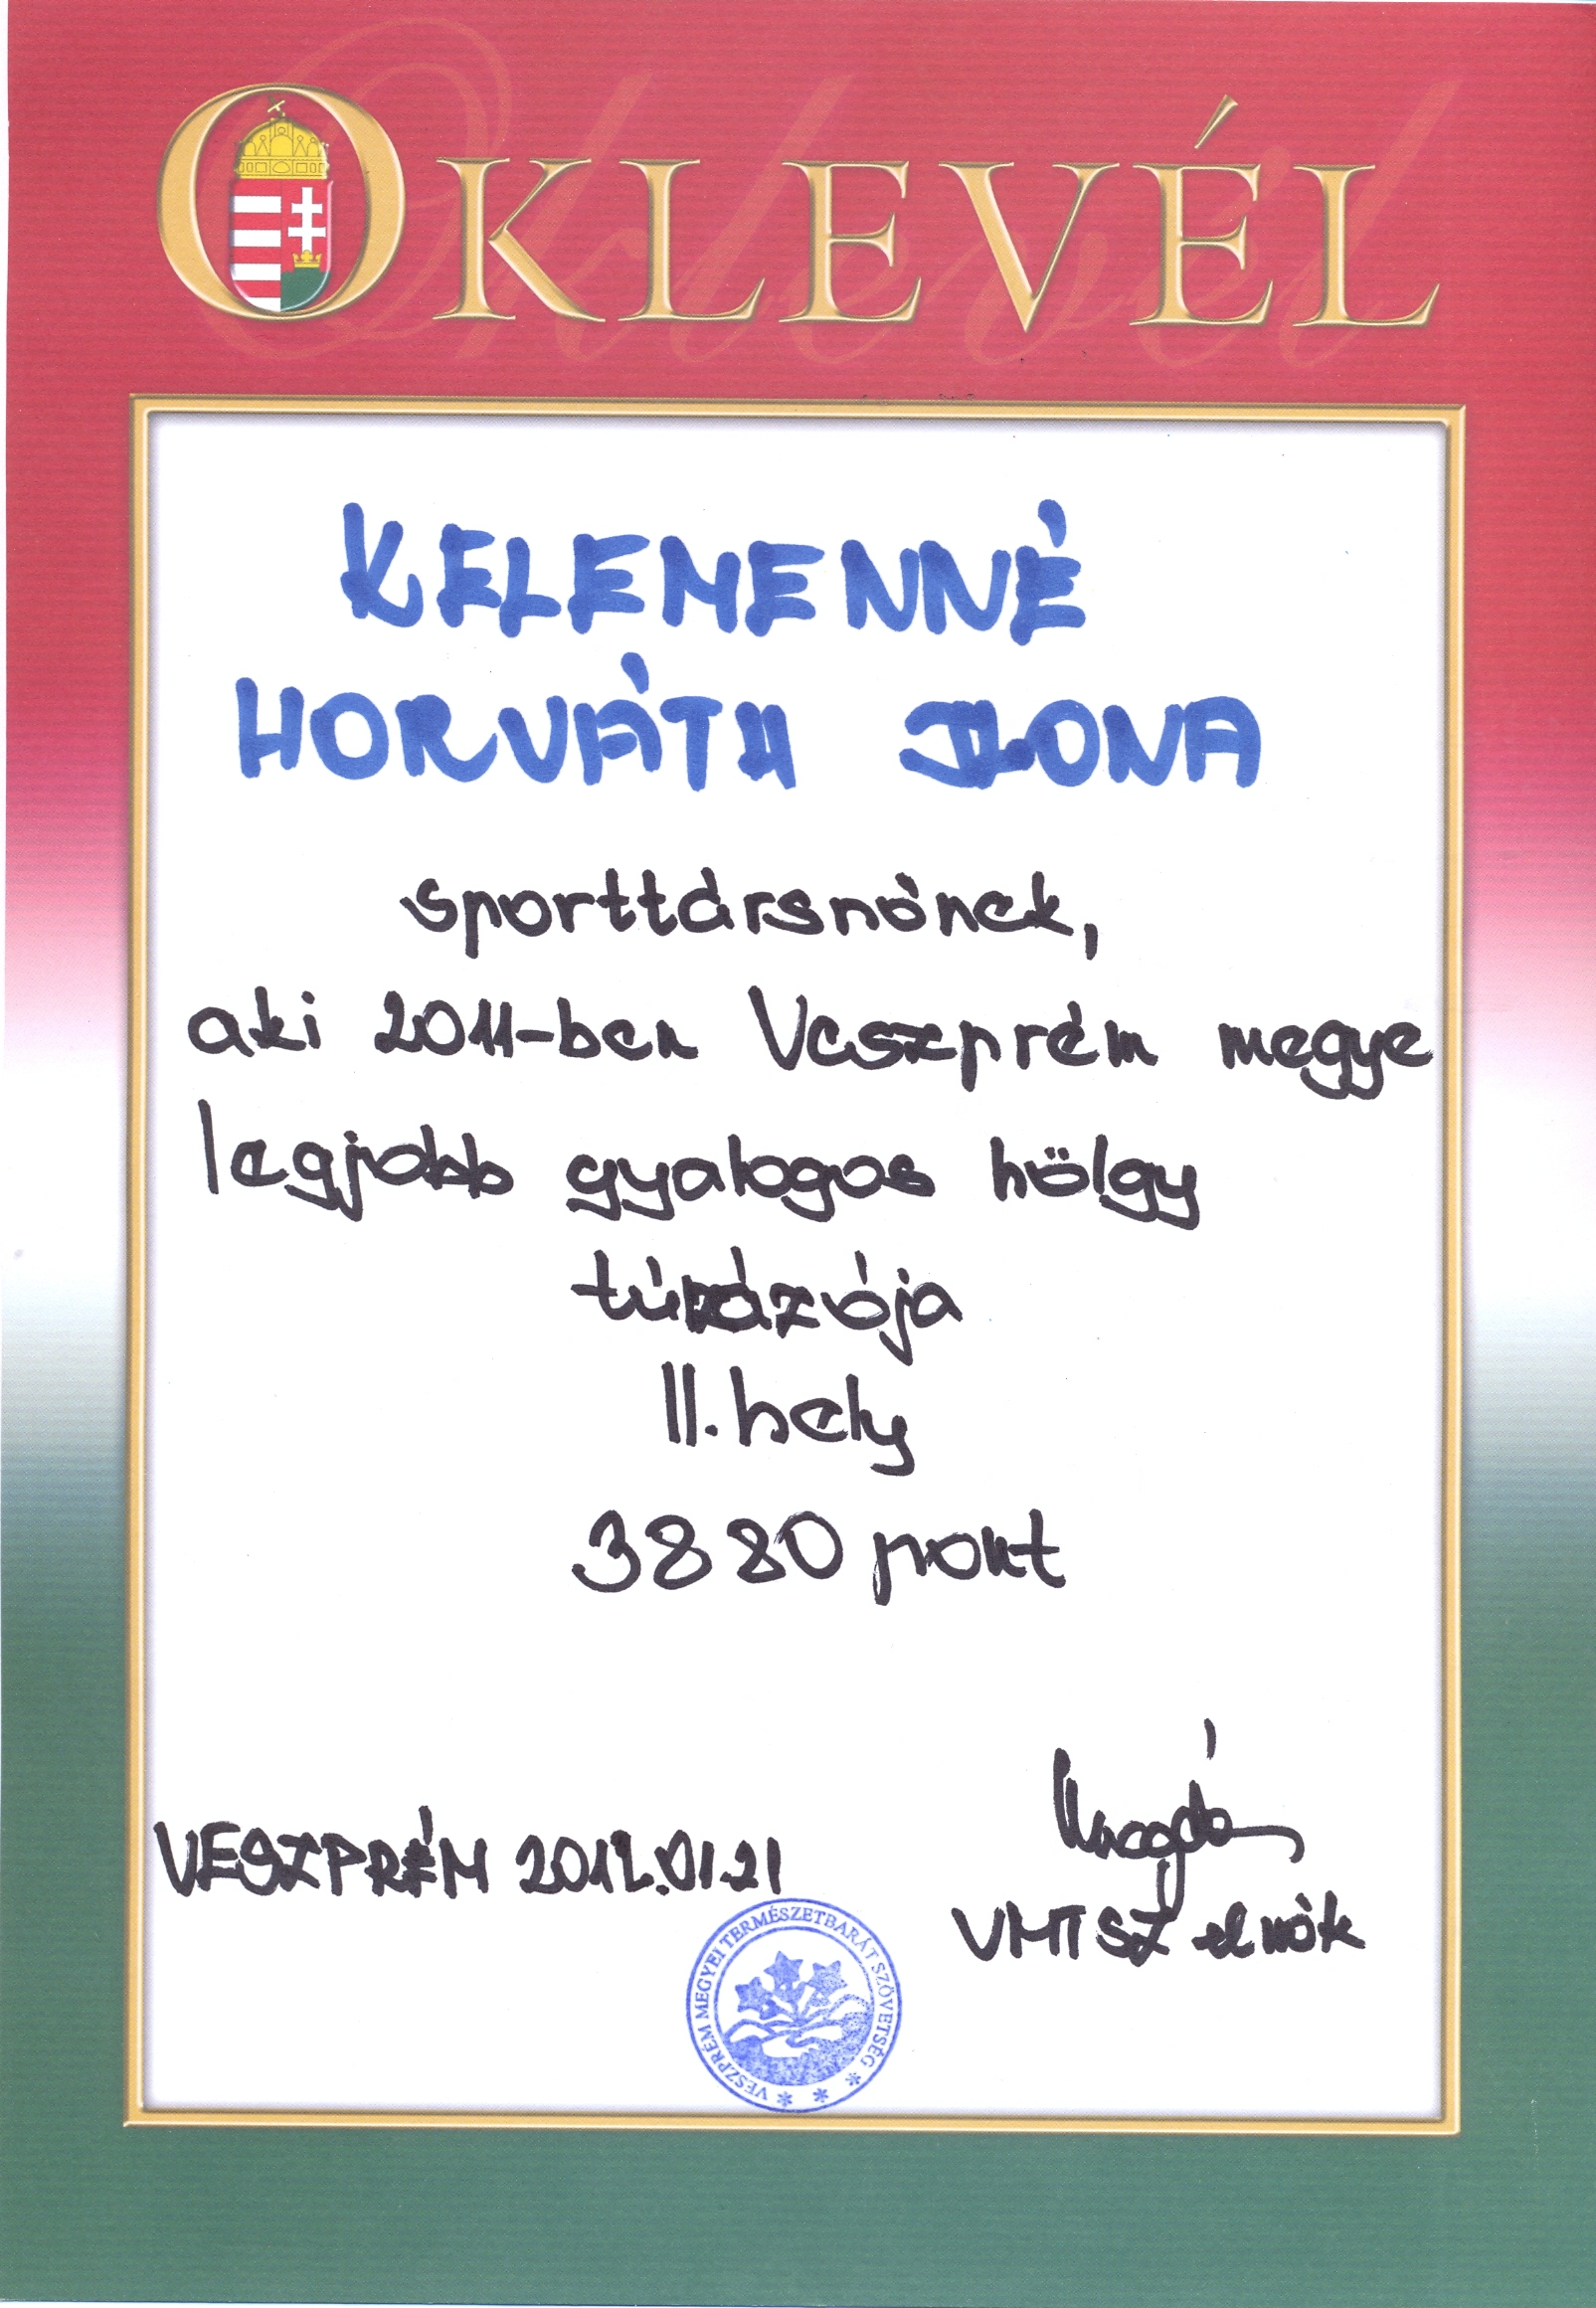 OKLEVÉL
KELEMENNÉ
HORVÁTH ILONA
sporttársnőnek,
aki 2011-ben Veszprém megye
legjobb gyalogos hölgy
túrázója
II. hely
3880 pont
VESZPRÉM 2012.01.21
VMTSZ elnök
VESZPRÉM MEGYEI TERMÉSZETBARÁT SZÖVETSÉG * * *